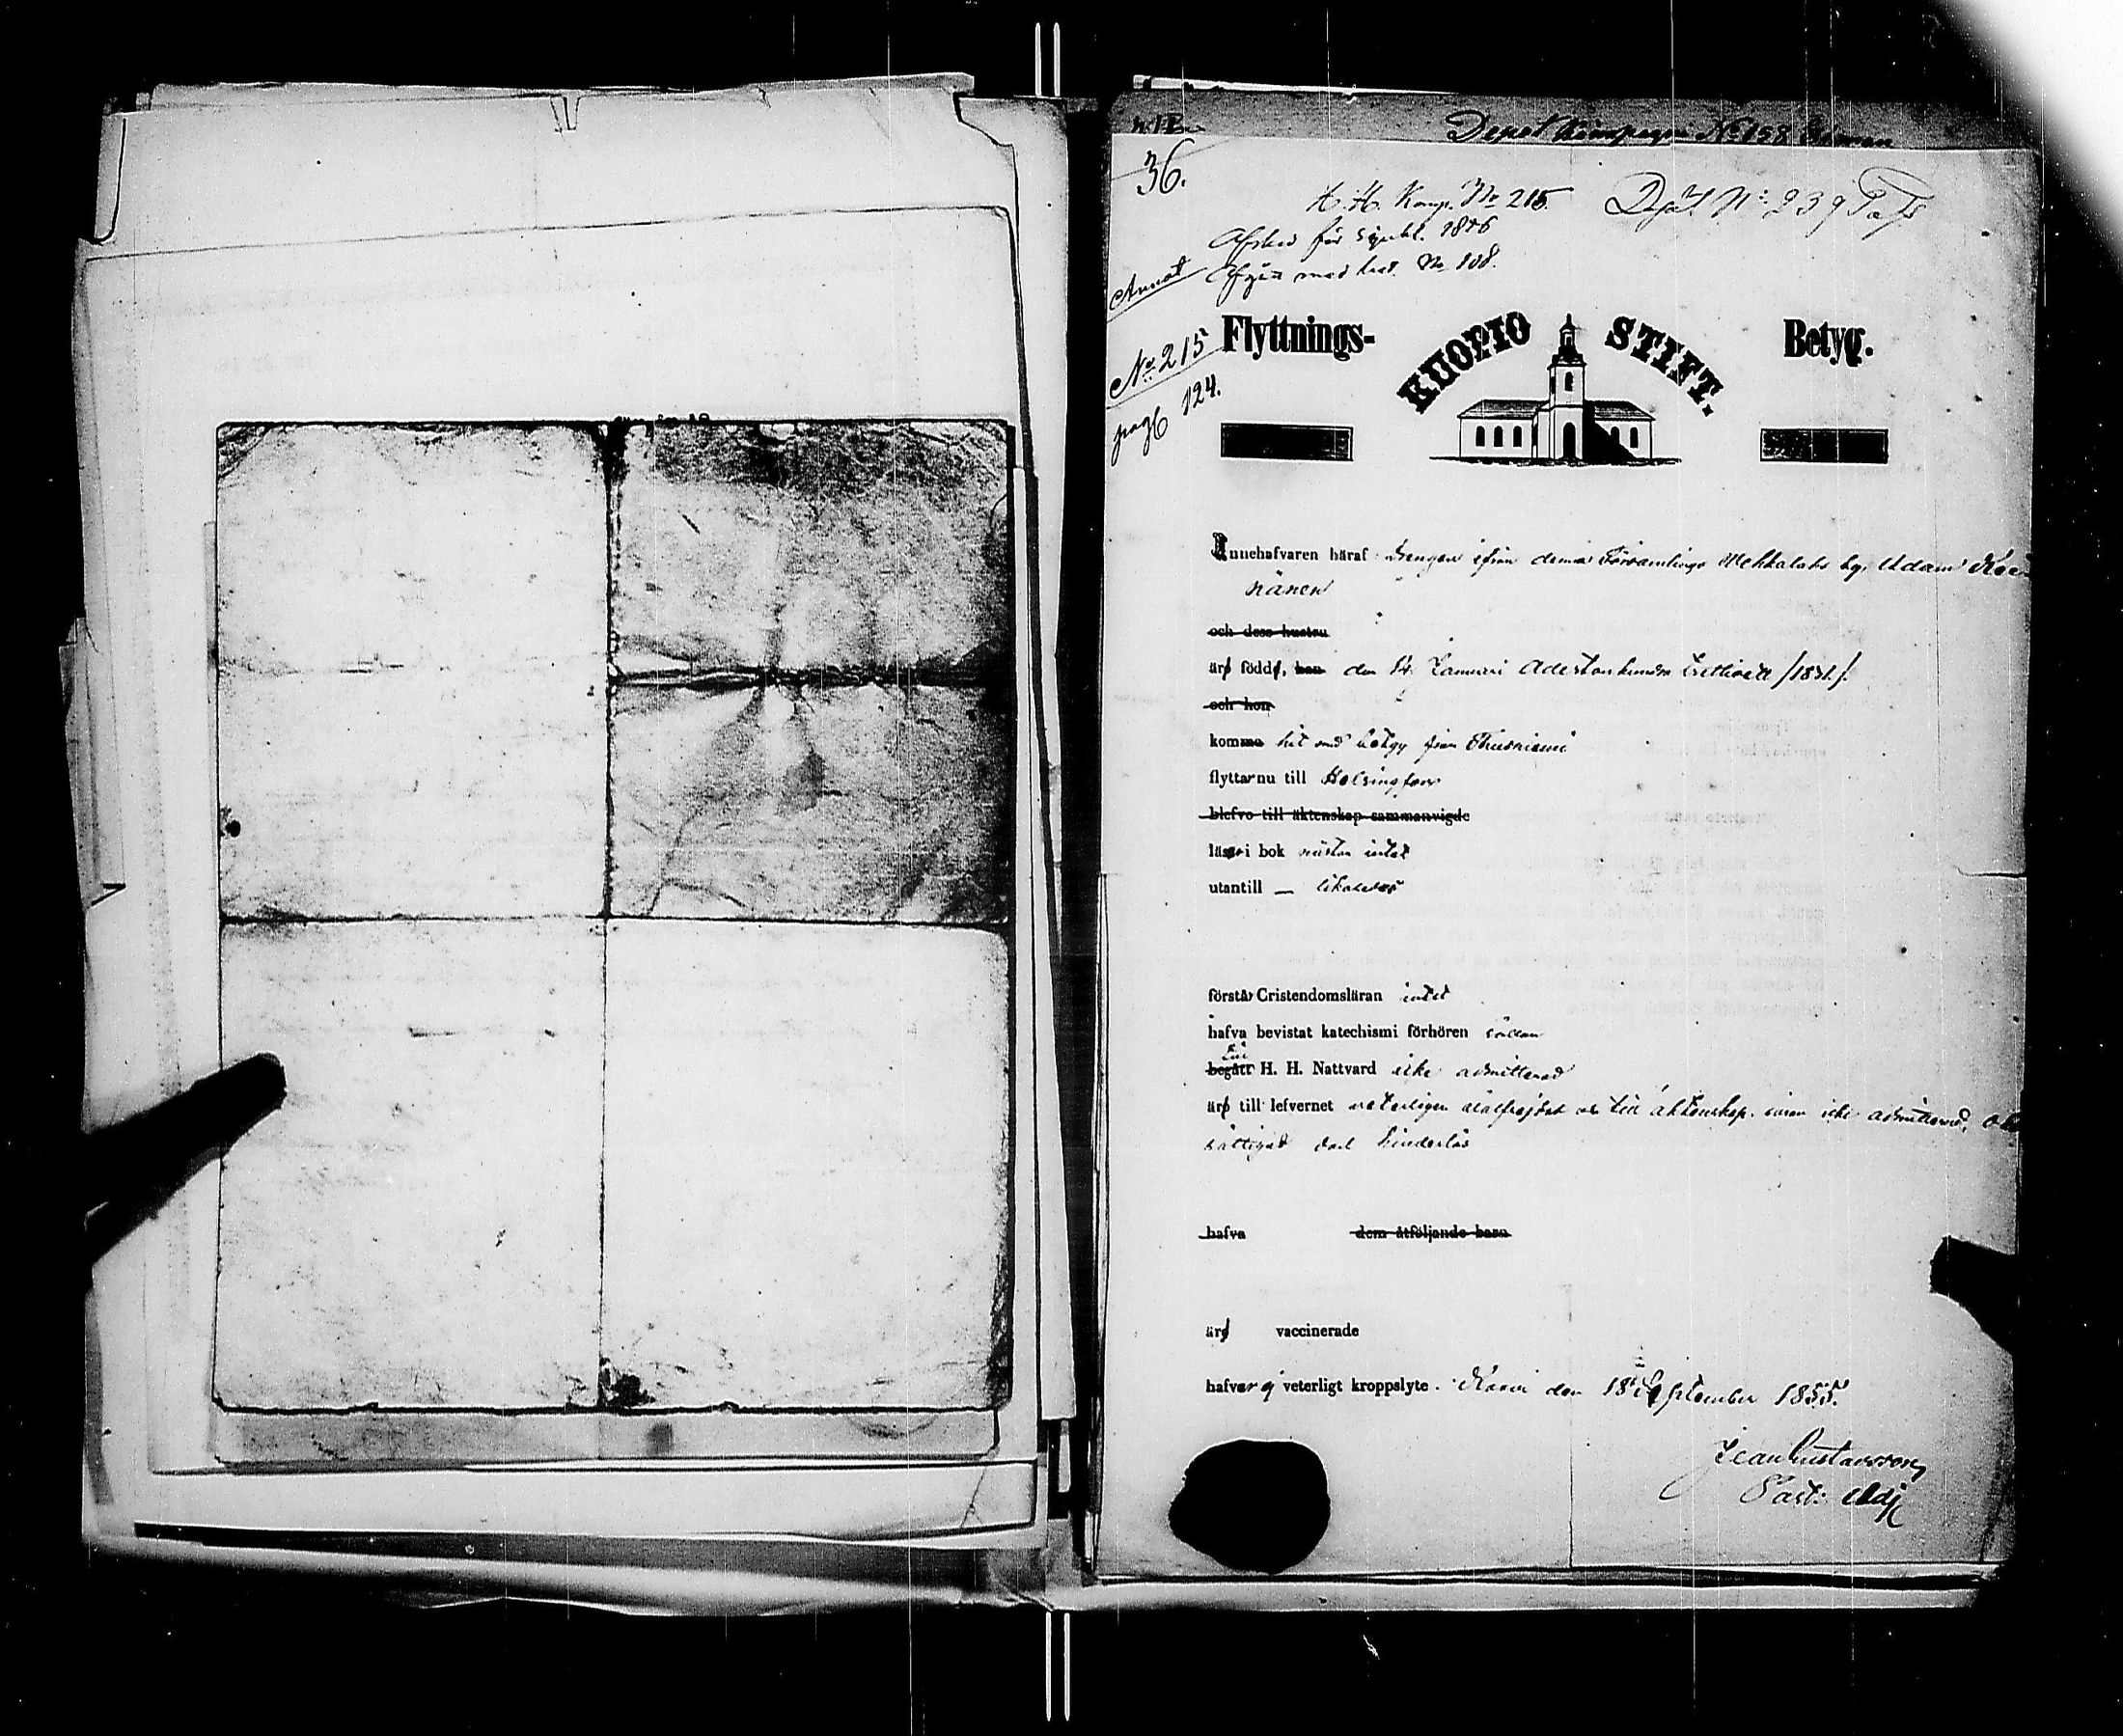 Depot Kompagni No 158
36.
H. H. Komp. No 215. Depôt No: 239
Afsked för sjukl. 1856
Annot
med No 108.
No 215
pag 124.
Flyttnings- KUOPIO STIFT. Betyg.
Innehafvaren häraf Drengen ifrån denna Församlings by, Adam
nänen
och dess hustru
äro född, han den 14 Januari Adertonhundra Trettioett /1831./.
och hon
komma hit med betyg från Thusniemi
flyttar nu till Helsingfors
blefvo till äktenskap sammanvigde
läser i bok nästan intet
utantill — likaledes
förstår Cristendomsläran intet
hafva bevistat katechismi förhören sällan
Till
begått H. H. Nattvard icke admitterad
äro till lefvernet veterligen och till äktenskap, såsom icke admitterad,
rättigad dock hinderlös
hafva dem åtföljande barn
äro vaccinerade
hafver ej veterligt kroppslyte. Kaavi den 18 September 1855.
Jean Gustavsson
Past: Adj